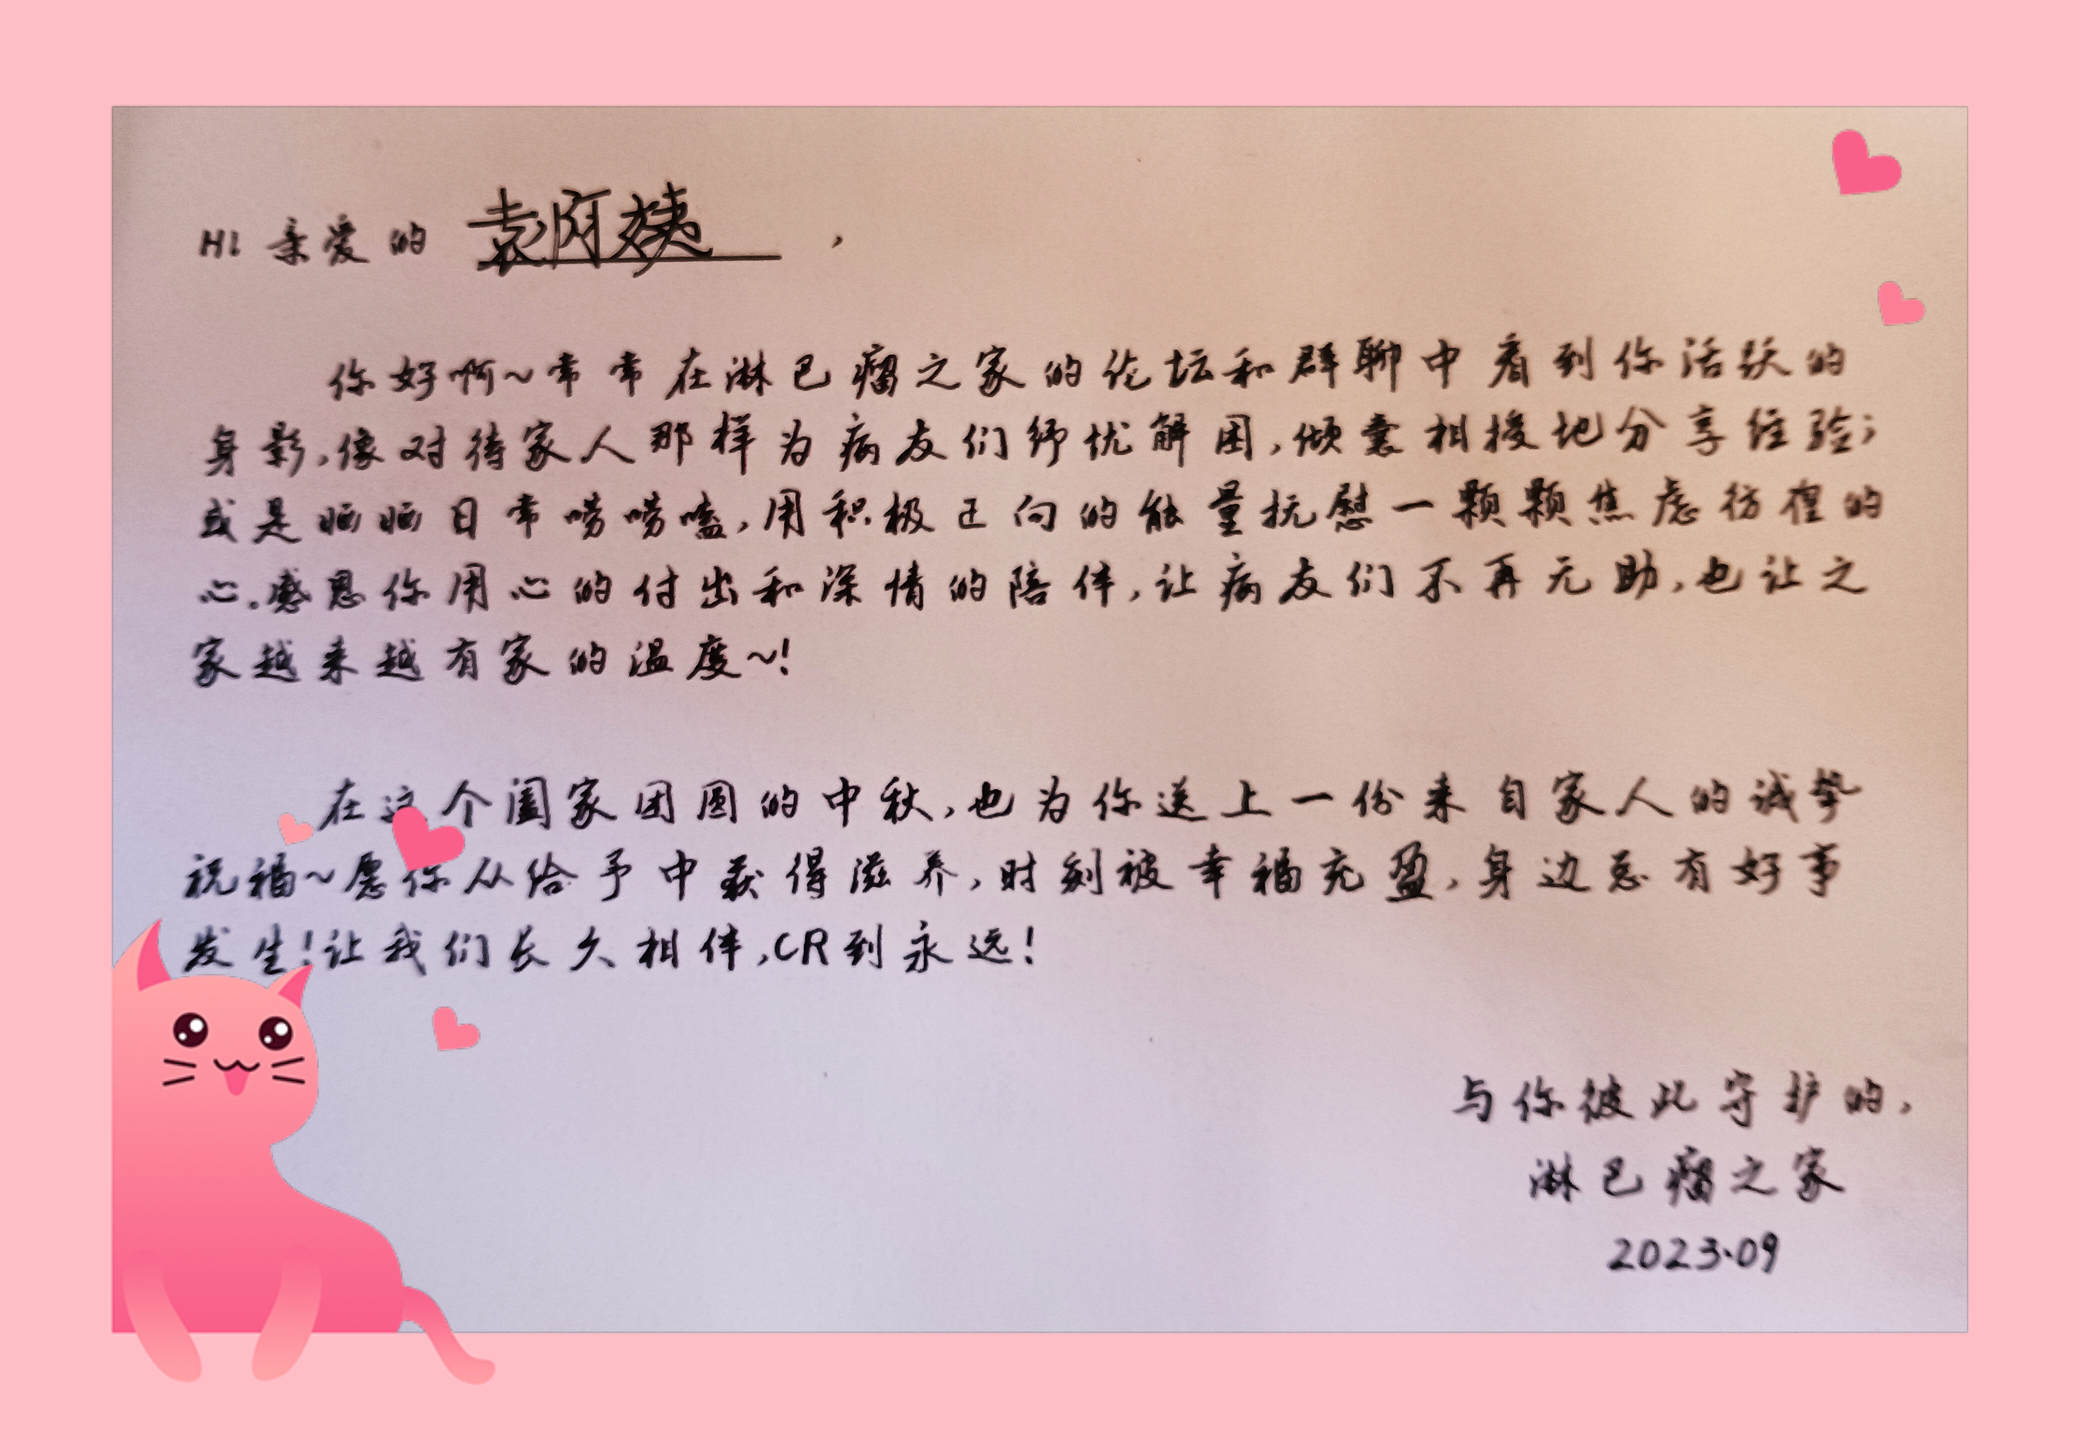 Hi 亲爱的 袁阿姨 ,
你好啊~常常在淋巴瘤之家的论坛和群聊中看到你活跃的
身影,像对待家人那样为病友们纾忧解困,倾囊相授地分享经验;
或是晒晒日常唠唠嗑,用积极正向的能量抚慰一颗颗焦虑彷徨的
心。感恩你用心的付出和深情的陪伴,让病友们不再无助,也让之
家越来越有家的温度~!
在这个阖家团圆的中秋,也为你送上一份来自家人的诚挚
祝福~愿你从给予中获得滋养,时刻被幸福充盈,身边总有好事
发生!让我们长久相伴,CR到永远!
与你彼此守护的,
淋巴瘤之家
2023.09